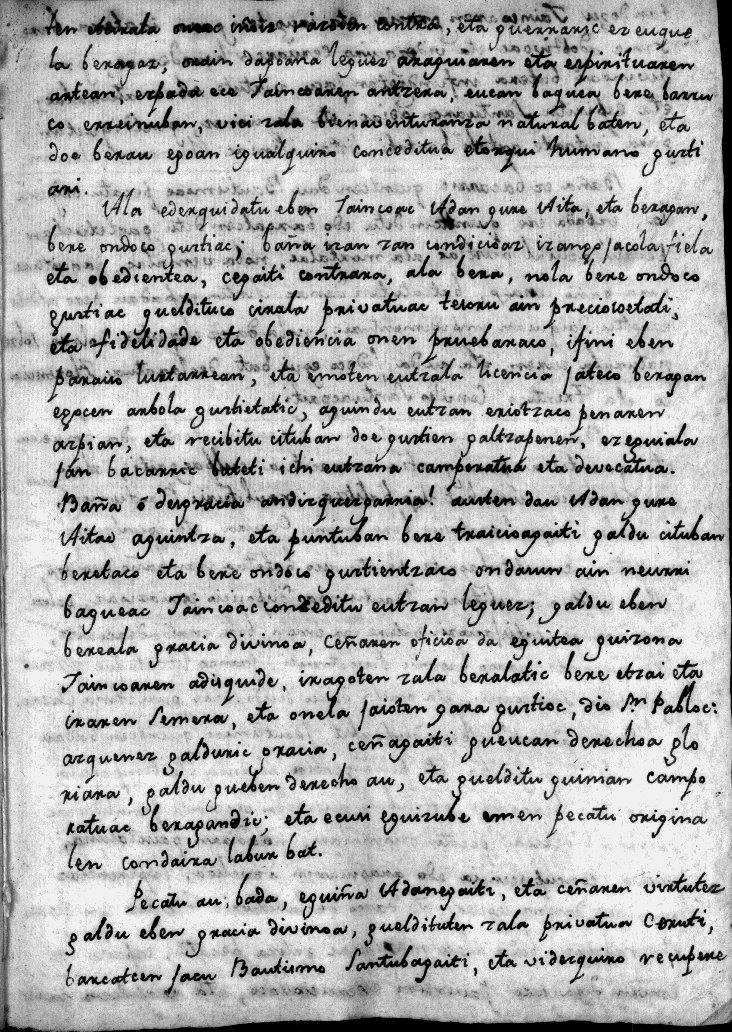 ten etzirala onec inoiz razoien contra, eta guerraric ez euque
la beragaz; orain dagoana leguez araguiaren eta espirituaren
artean, ezpada ece Jaincoaren antzera, eucan baquea bere barru
co erreinuban, vici zala bienaventuranza natural baten, eta
doe berau egoan igualquiro conceditua etorqui humano guzti
ari.
Ala ederquidatu eben Jaincoac Adan gure Aita, eta beragan,
bere ondoco guztiac; baña izan zan condicioaz izango jacola fiela
eta obedientea, cegaiti contrara, ala bera, nola bere ondoco
guztiac gueldituco cirala privatuac tesoru ain preciosoetati,
eta fidelidade eta obediencia onen pruebaraco, ifini eben
paraiso lurtarrean, eta emoten eutzala licencia jateco beragan
egocen arbola guztietatic, agindu eutzan eriotzaco penaren
azpian, eta recibitu cituban doe guztien galtzapeneñ, ez eguiala
jan bacarric bateti ichi eutzana camporatua eta devecatua.
Baña ó desgracia andizquezgarria! austen dau Adan gure
Aitac aguintza, eta puntuban bere traicioagaiti galdu cituban
beretaco eta bere ondoco guztientzaco ondasun ain neurri
bagueac Jaincoac conzeditu eutzan leguez; galdu eben
bereala gracia divinoa, ceñaren oficioa da eguitea guizona
Jaincoaren adisquide, iragoten zala beralatic bere etzai eta
iraren semera, eta onela jaioten gara guztioc, dio Sn. Pabloc:
azquenez galduric gracia, ceñagaiti gueucan derechoa glo
riara, galdu gueben derecho au, eta gueldituguinian campo
ratuac beragandic; eta ecusi eguizube emen pecatu origina
len condaira labur bat.
Pecatu au, bada, eguiña Adanegaiti, eta ceñaren virtutez
galdu eben gracia divinoa, gueldituten zala privatua Ceruti,
barcatcen jacu Bautismo Santubagaiti, eta viderquiro recupere